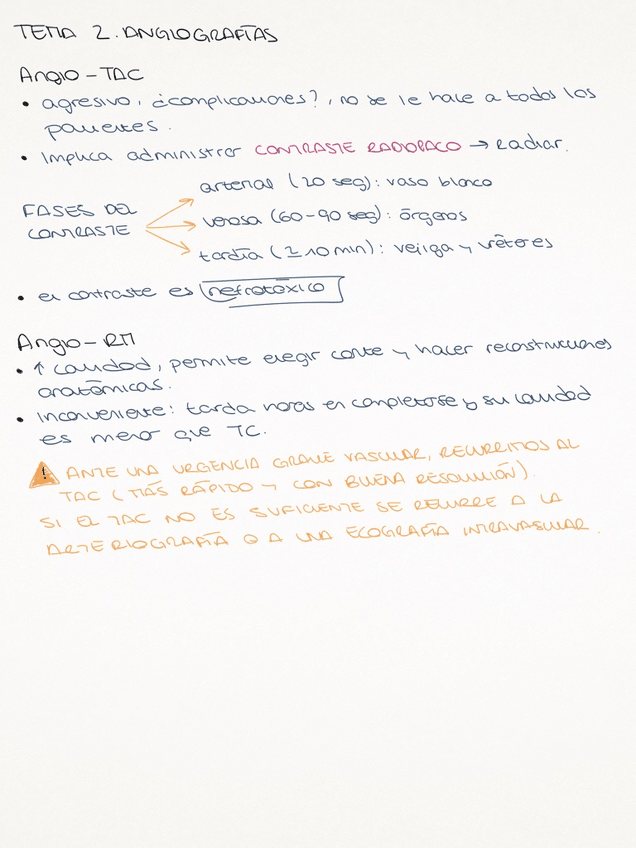 TEMA 2. ANGIOGRAFÍAS
Angio-TAC
• agresivo, ¿complicaciones?, no se le hace a todos los
pacientes.
• Implica administrar CONTRASTE RADIOPACO → Radiar.
arterial (20 seg): vaso blanco
FASES DEL
CONTRASTE
venosa (60-90 seg): órganos
tardía (≥10 min): vejiga y uréteres
• el contraste es nefrotóxico
Angio-RM
• ↑ calidad, permite elegir corte y hacer reconstrucciones
anatómicas.
• Inconveniente: tarda horas en completarse y su calidad
es menor que TC.
ANTE UNA URGENCIA GRAVE VASCULAR, RECURRIMOS AL
TAC (MÁS RÁPIDO Y CON BUENA RESOLUCIÓN).
SI EL TAC NO ES SUFICIENTE SE RECURRE A LA
ARTERIOGRAFÍA O A UNA ECOGRAFÍA INTRAVASCULAR.